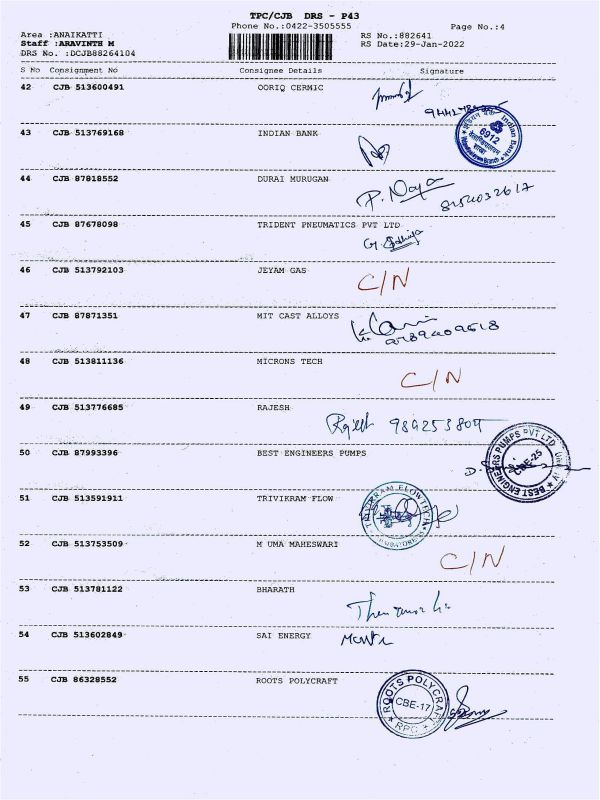 TPC/CJB DRS - P43
Phone No.:0422-3505555
Page No.:4
Area :ANAIKATTI
RS No.:882641
Staff :ARAVINTH M
RS Date:29-Jan-2022
DRS No. :DCJB88264104
S No Consignment No Consignee Details Signature
42 CJB 513600491 OORIQ CERMIC
43 CJB 513769168 INDIAN BANK
Indian Bank
6912
44 CJB 87818552 DURAI MURUGAN
45 CJB 87678098 TRIDENT PNEUMATICS PVT LTD
46 CJB 513792103 JEYAM GAS C/N
47 CJB 87871351 MIT CAST ALLOYS
48 CJB 513811136 MICRONS TECH C/N
49 CJB 513776685 RAJESH Rajesh 989253809
50 CJB 87993396 BEST ENGINEERS PUMPS
BEST ENGINEERS PUMPS PVT LTD
CBE-25
51 CJB 513591911 TRIVIKRAM FLOW
TRIVIKRAM FLOWTECH
52 CJB 513753509 M UMA MAHESWARI C/N
53 CJB 513781122 BHARATH
54 CJB 513602849 SAI ENERGY
55 CJB 86328552 ROOTS POLYCRAFT
ROOTS POLYCRAFT
CBE-17
RPC